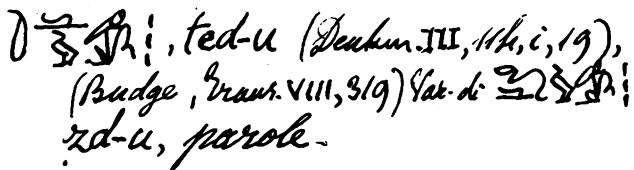 ted-u (Denkm. III, 114, i, 19),
(Budge, Trans. VIII, 319) Var. di
zd-u, parole.